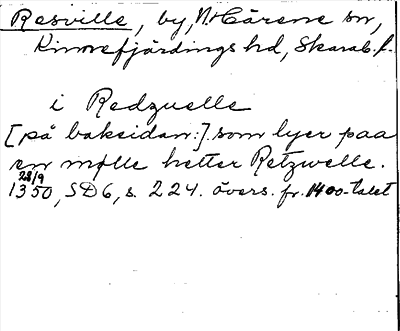 Resville, by, N. Cärene sn,
Kinnefjärdings hd, Skarab.l.
i Redzuelle
[på baksidan:] som lyer paa
en mølle hetter Retzwelle.
28/9
1350, SD6, s. 224. övers. fr. 1400-talet